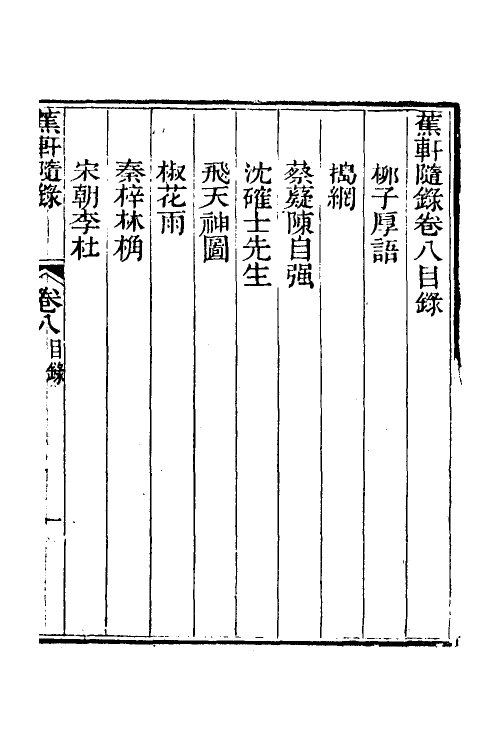 蕉軒隨錄卷八目錄
柳子厚語
搗網
蔡薿陳自强
沈確士先生
飛天神圖
椒花雨
秦梓林桷
宋朝李杜
蕉軒隨錄
卷八
目錄
一